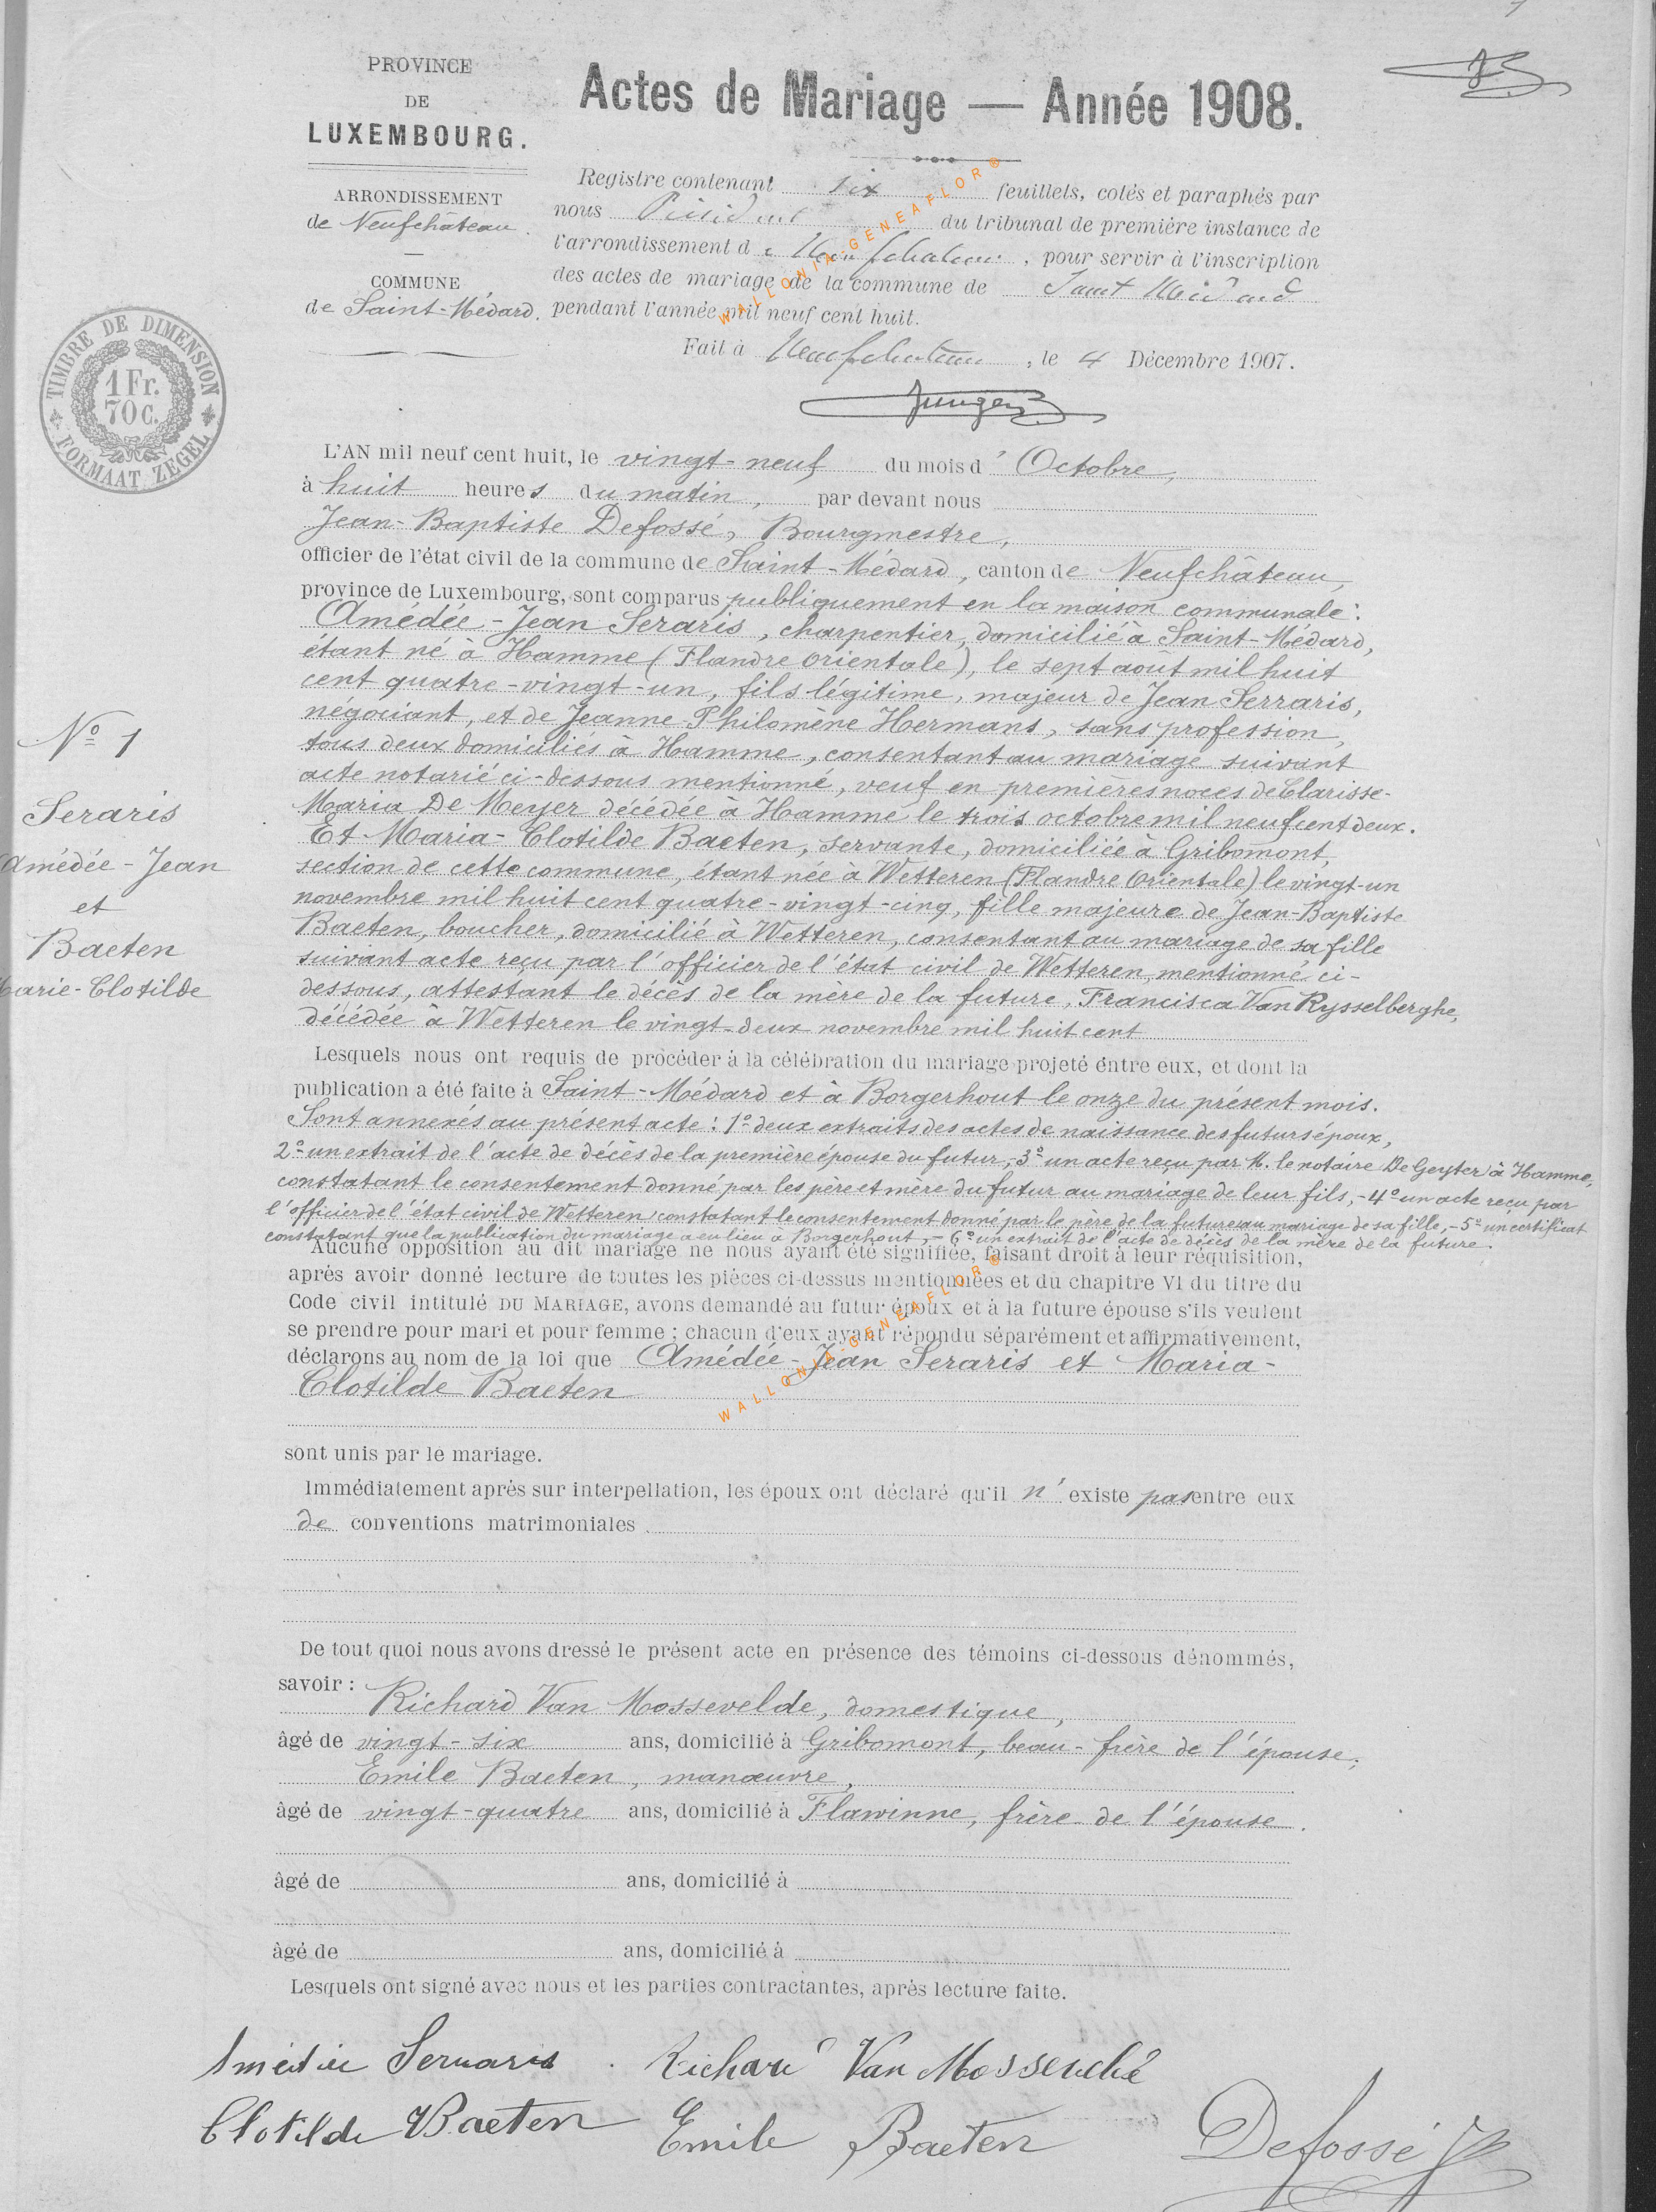 PROVINCE
DE
LUXEMBOURG.
ARRONDISSEMENT
de Neufchâteau.
COMMUNE
de Saint-Médard.
Actes de Mariage — Année 1908.
Registre contenant six feuillets, cotés et paraphés par
nous Président du tribunal de première instance de
l'arrondissement de Neufchateau, pour servir à l'inscription
des actes de mariage de la commune de Saint Médard
pendant l'année mil neuf cent huit.
Fait à Neufchateau, le 4 Décembre 1907.
TIMBRE DE DIMENSION
1 Fr.
70 c.
FORMAAT ZEGEL
L'AN mil neuf cent huit, le vingt-neuf du mois d'Octobre,
à huit heures du matin, par devant nous
Jean-Baptiste Defossé, Bourgmestre,
officier de l'état civil de la commune de Saint-Médard, canton de Neufchâteau,
province de Luxembourg, sont comparus publiquement en la maison communale:
Amédée-Jean Seraris, charpentier, domicilié à Saint-Médard,
étant né à Hamme (Flandre Orientale), le sept août mil huit
cent quatre-vingt-un, fils légitime, majeur de Jean Serraris,
négociant, et de Jeanne-Philomène Hermans, sans profession,
tous deux domiciliés à Hamme, consentant au mariage suivant
acte notarié ci-dessous mentionné, veuf en premières noces de Clarisse-
Maria De Meyer décédée à Hamme le trois octobre mil neuf cent deux.
Et Maria-Clotilde Baeten, servante, domiciliée à Gribomont,
section de cette commune, étant née à Wetteren (Flandre Orientale) le vingt-un
novembre mil huit cent quatre-vingt-cinq, fille majeure de Jean-Baptiste
Baeten, boucher, domicilié à Wetteren, consentant au mariage de sa fille
suivant acte reçu par l'officier de l'état civil de Wetteren, mentionné ci-
dessous, attestant le décès de la mère de la future, Francisca Van Rysselberghe,
décédée a Wetteren le vingt-deux novembre mil huit cent
N° 1
Seraris
Amédée-Jean
et
Baeten
Marie-Clotilde
Lesquels nous ont requis de procéder à la célébration du mariage projeté entre eux, et dont la
publication a été faite à Saint-Médard et à Borgerhout le onze du présent mois.
Sont annexés au présent acte: 1° deux extraits des actes de naissance des futurs époux,
2° un extrait de l'acte de décès de la première épouse du futur,- 3° un acte reçu par M. le notaire De Geyter à Hamme,
constatant le consentement donné par les père et mère du futur au mariage de leur fils,- 4° un acte reçu par
l'officier de l'état civil de Wetteren constatant le consentement donné par le père de la future au mariage de sa fille,- 5° un certificat
constatant que la publication du mariage a eu lieu a Borgerhout,- 6° un extrait de l'acte de décès de la mère de la future.
Aucune opposition au dit mariage ne nous ayant été signifiée, faisant droit à leur réquisition,
après avoir donné lecture de toutes les pièces ci-dessus mentionnées et du chapitre VI du titre du
Code civil intitulé DU MARIAGE, avons demandé au futur époux et à la future épouse s'ils veulent
se prendre pour mari et pour femme ; chacun d'eux ayant répondu séparément et affirmativement,
déclarons au nom de la loi que Amédée-Jean Seraris et Maria-
Clotilde Baeten
sont unis par le mariage.
Immédiatement après sur interpellation, les époux ont déclaré qu'il n'existe pas entre eux
de conventions matrimoniales
De tout quoi nous avons dressé le présent acte en présence des témoins ci-dessous dénommés,
savoir : Richard Van Mossevelde, domestique,
âgé de vingt-six ans, domicilié à Gribomont, beau-frère de l'épouse;
Emile Baeten, manœuvre,
âgé de vingt-quatre ans, domicilié à Flawinne, frère de l'épouse.
âgé de ans, domicilié à
âgé de ans, domicilié à
Lesquels ont signé avec nous et les parties contractantes, après lecture faite.
Amédée Serraris Richard Van Mossevelde
Clotilde Baeten Emile Baeten Defossé
WALLONIA-GENEAFLOR®
WALLONIA-GENEAFLOR®